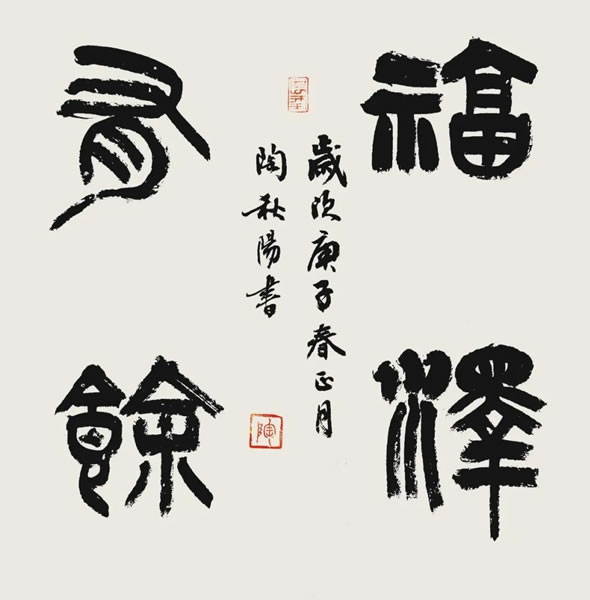 福澤
有餘
歲次庚子春正月
陶秋陽書
陶